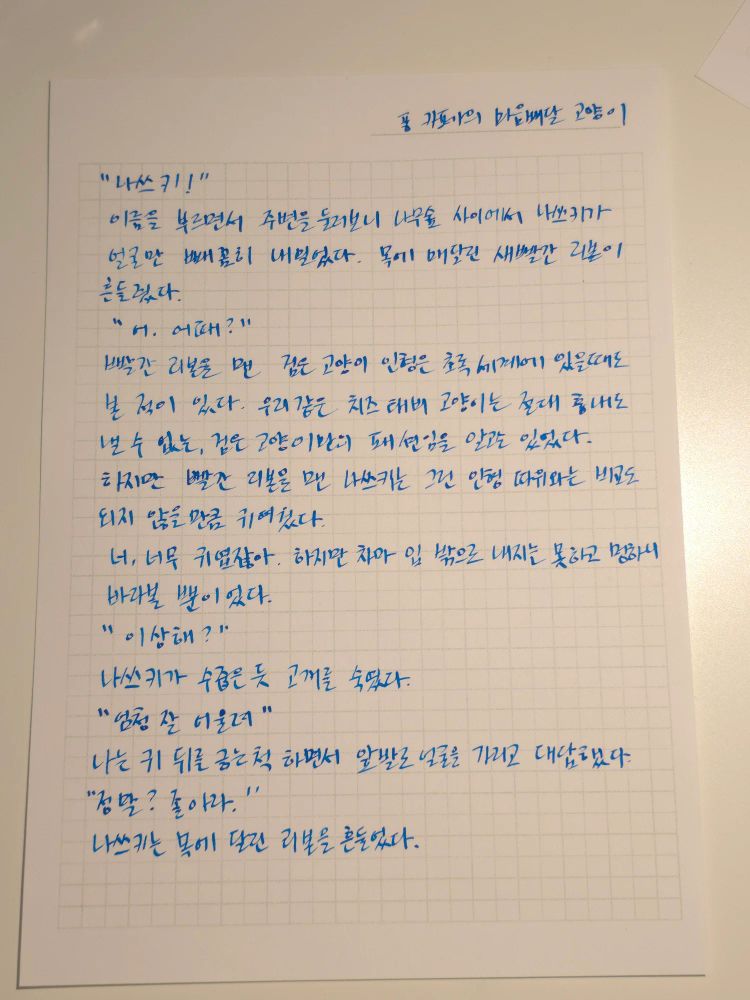 퐁 카페의 마음배달 고양이
"나쓰키!"
이름을 부르면서 주변을 둘러보니 나무숲 사이에서 나쓰키가
얼굴만 빼꼼히 내밀었다. 목에 매달린 새빨간 리본이
흔들렸다.
"어. 어때?"
빨간 리본을 맨 검은 고양이 인형은 초록 세계에 있을때도
본 적이 있다. 우리같은 치즈 태비 고양이는 절대 흉내도
낼 수 없는, 검은 고양이만의 패션임을 알고는 있었다.
하지만 빨간 리본을 맨 나쓰키는 그런 인형 따위와는 비교도
되지 않을만큼 귀여웠다.
너, 너무 귀엽잖아. 하지만 차마 입 밖으로 내지는 못하고 멍하니
바라볼 뿐이었다.
"이상해?"
나쓰키가 수줍은 듯 고개를 숙였다.
"엄청 잘 어울려"
나는 귀 뒤를 긁는척 하면서 앞발로 얼굴을 가리고 대답했다.
"정말? 좋아라."
나쓰키는 목에 달린 리본을 흔들었다.